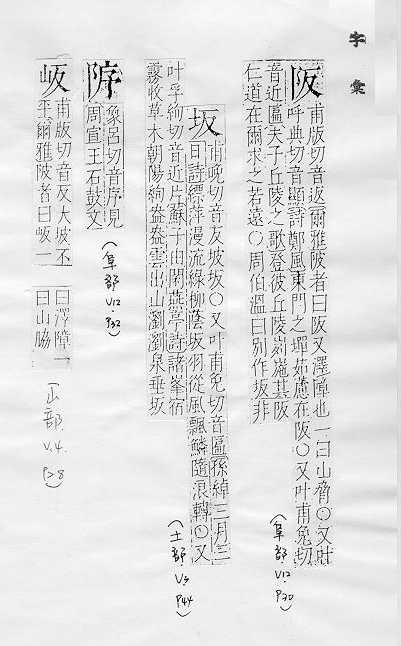 字彙
阪 甫版切音返爾雅陂者曰阪又澤障也一曰山脅〇又
呼典切音顯詩鄭風東門之墠茹藘在阪〇又叶甫免切
音近匾夫子丘陵之歌登彼丘陵峛崺其阪
仁道在爾求之若遠〇周伯溫曰別作坂非
(阜部 V12 P30)
坂 甫晚切音反坡坂〇又叶甫免切音匾孫綽三月三
日詩縹萍漫流綠柳蔭坂羽從風飄鱗隨浪轉〇又
叶孚絢切音近片蘇子由閑燕亭詩諸峯宿
霧收草木朝陽絢盎盎雲出山瀏瀏泉垂坂
(土部 V3 P44)
㡿 象呂切音序見
周宣王石鼓文
(阜部 V12 P32)
岅 甫版切音反大坡不
平爾雅陂者曰岅一
曰澤障一
曰山脇
(山部 V.4. P28)